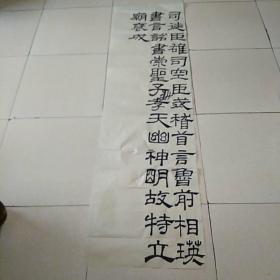 司徒臣雄司空臣戒稽首言魯前相瑛
書言詔書崇聖子孝天幽神明故特立
廟褒成